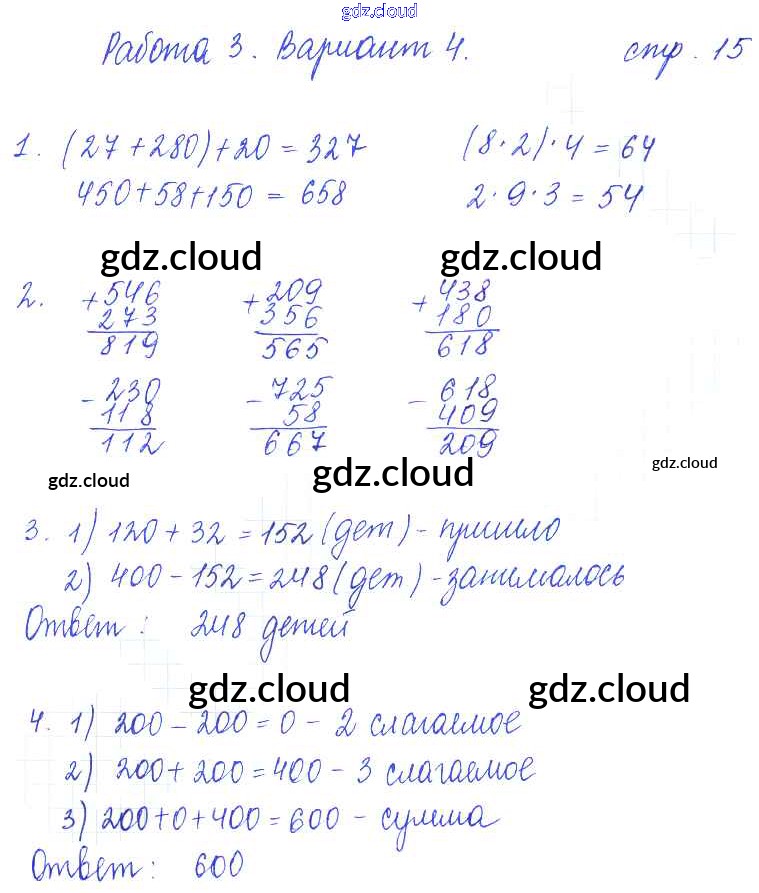 gdz.cloud
Работа 3. Вариант 4. стр. 15
1. (27+280)+20=327 (8·2)·4=64
450+58+150=658 2·9·3=54
gdz.cloud gdz.cloud
2. +546 +209 +438
273 356 180
819 565 618
-230 -725 -618
118 58 409
112 667 209
gdz.cloud gdz.cloud gdz.cloud
3. 1) 120+32=152 (дет) - пришло
2) 400-152=248 (дет) - занималось
Ответ: 248 детей
gdz.cloud gdz.cloud
4. 1) 200-200=0 - 2 слагаемое
2) 200+200=400 - 3 слагаемое
3) 200+0+400=600 - сумма
Ответ: 600